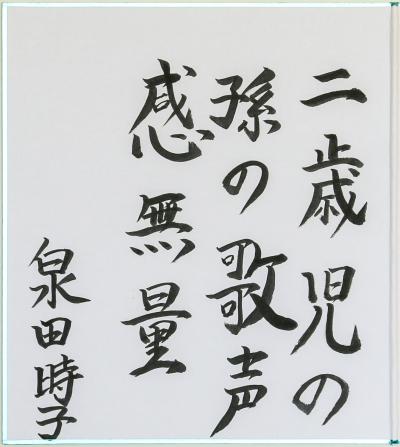 二歳児の
孫の歌声
感無量
泉田時子